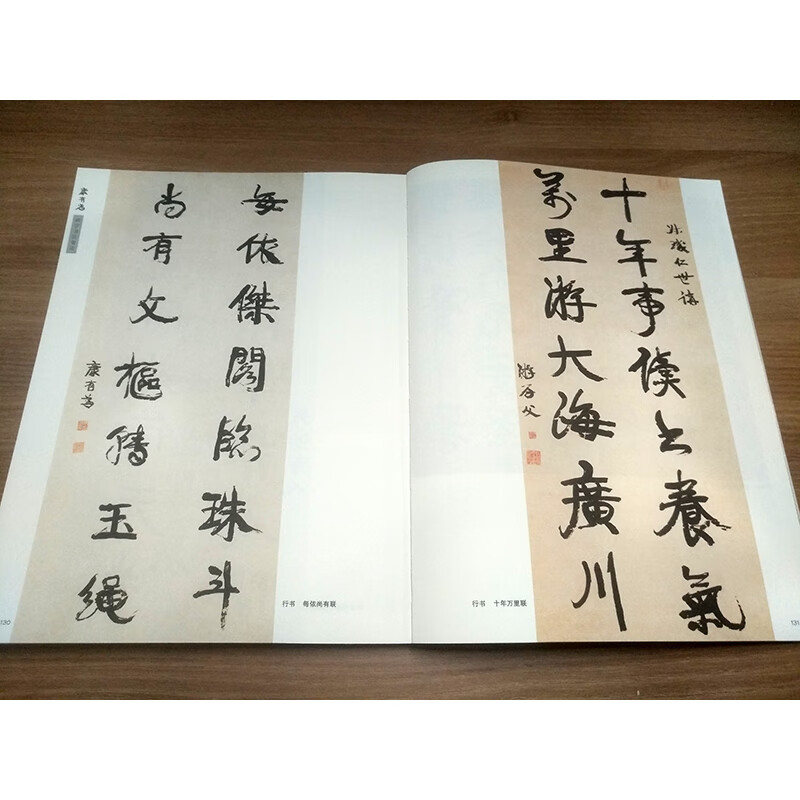 康有为
每依傑閣臨珠斗
尚有文樞玉繩
康有為
行书 每依尚有联
130
仁世講
十年事讀书養氣
萬里游大海廣川
游存父
行书 十年万里联
131